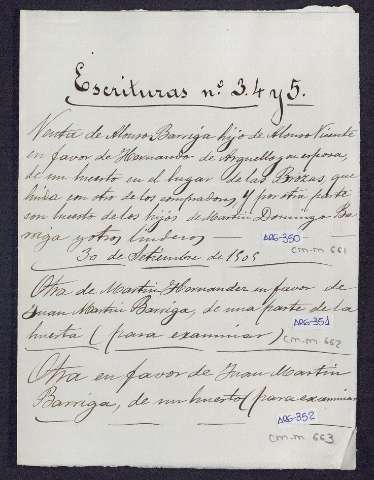 Escrituras nº 3. 4 y 5.
Venta de Alonso Barriga hijo de Alonso Vicente
en favor de Hernando de Arguello y su esposa,
de un huerto en el lugar de las Brozas, que
linda con otro de los compradores y por otra parte
con huerto de los hijos de Martin Domingo Ba-
rriga y otros linderos
ARG-350
30 de Setiembre de 1505
CM-M 661
Otra de Martin Hernandez en favor de
Juan Martin Barriga, de una parte de la
ARG-351
huerta (para examinar)
CM-M 662
Otra en favor de Juan Martin
Barriga, de un huerto (para examinar
ARG-352
CM-M 663